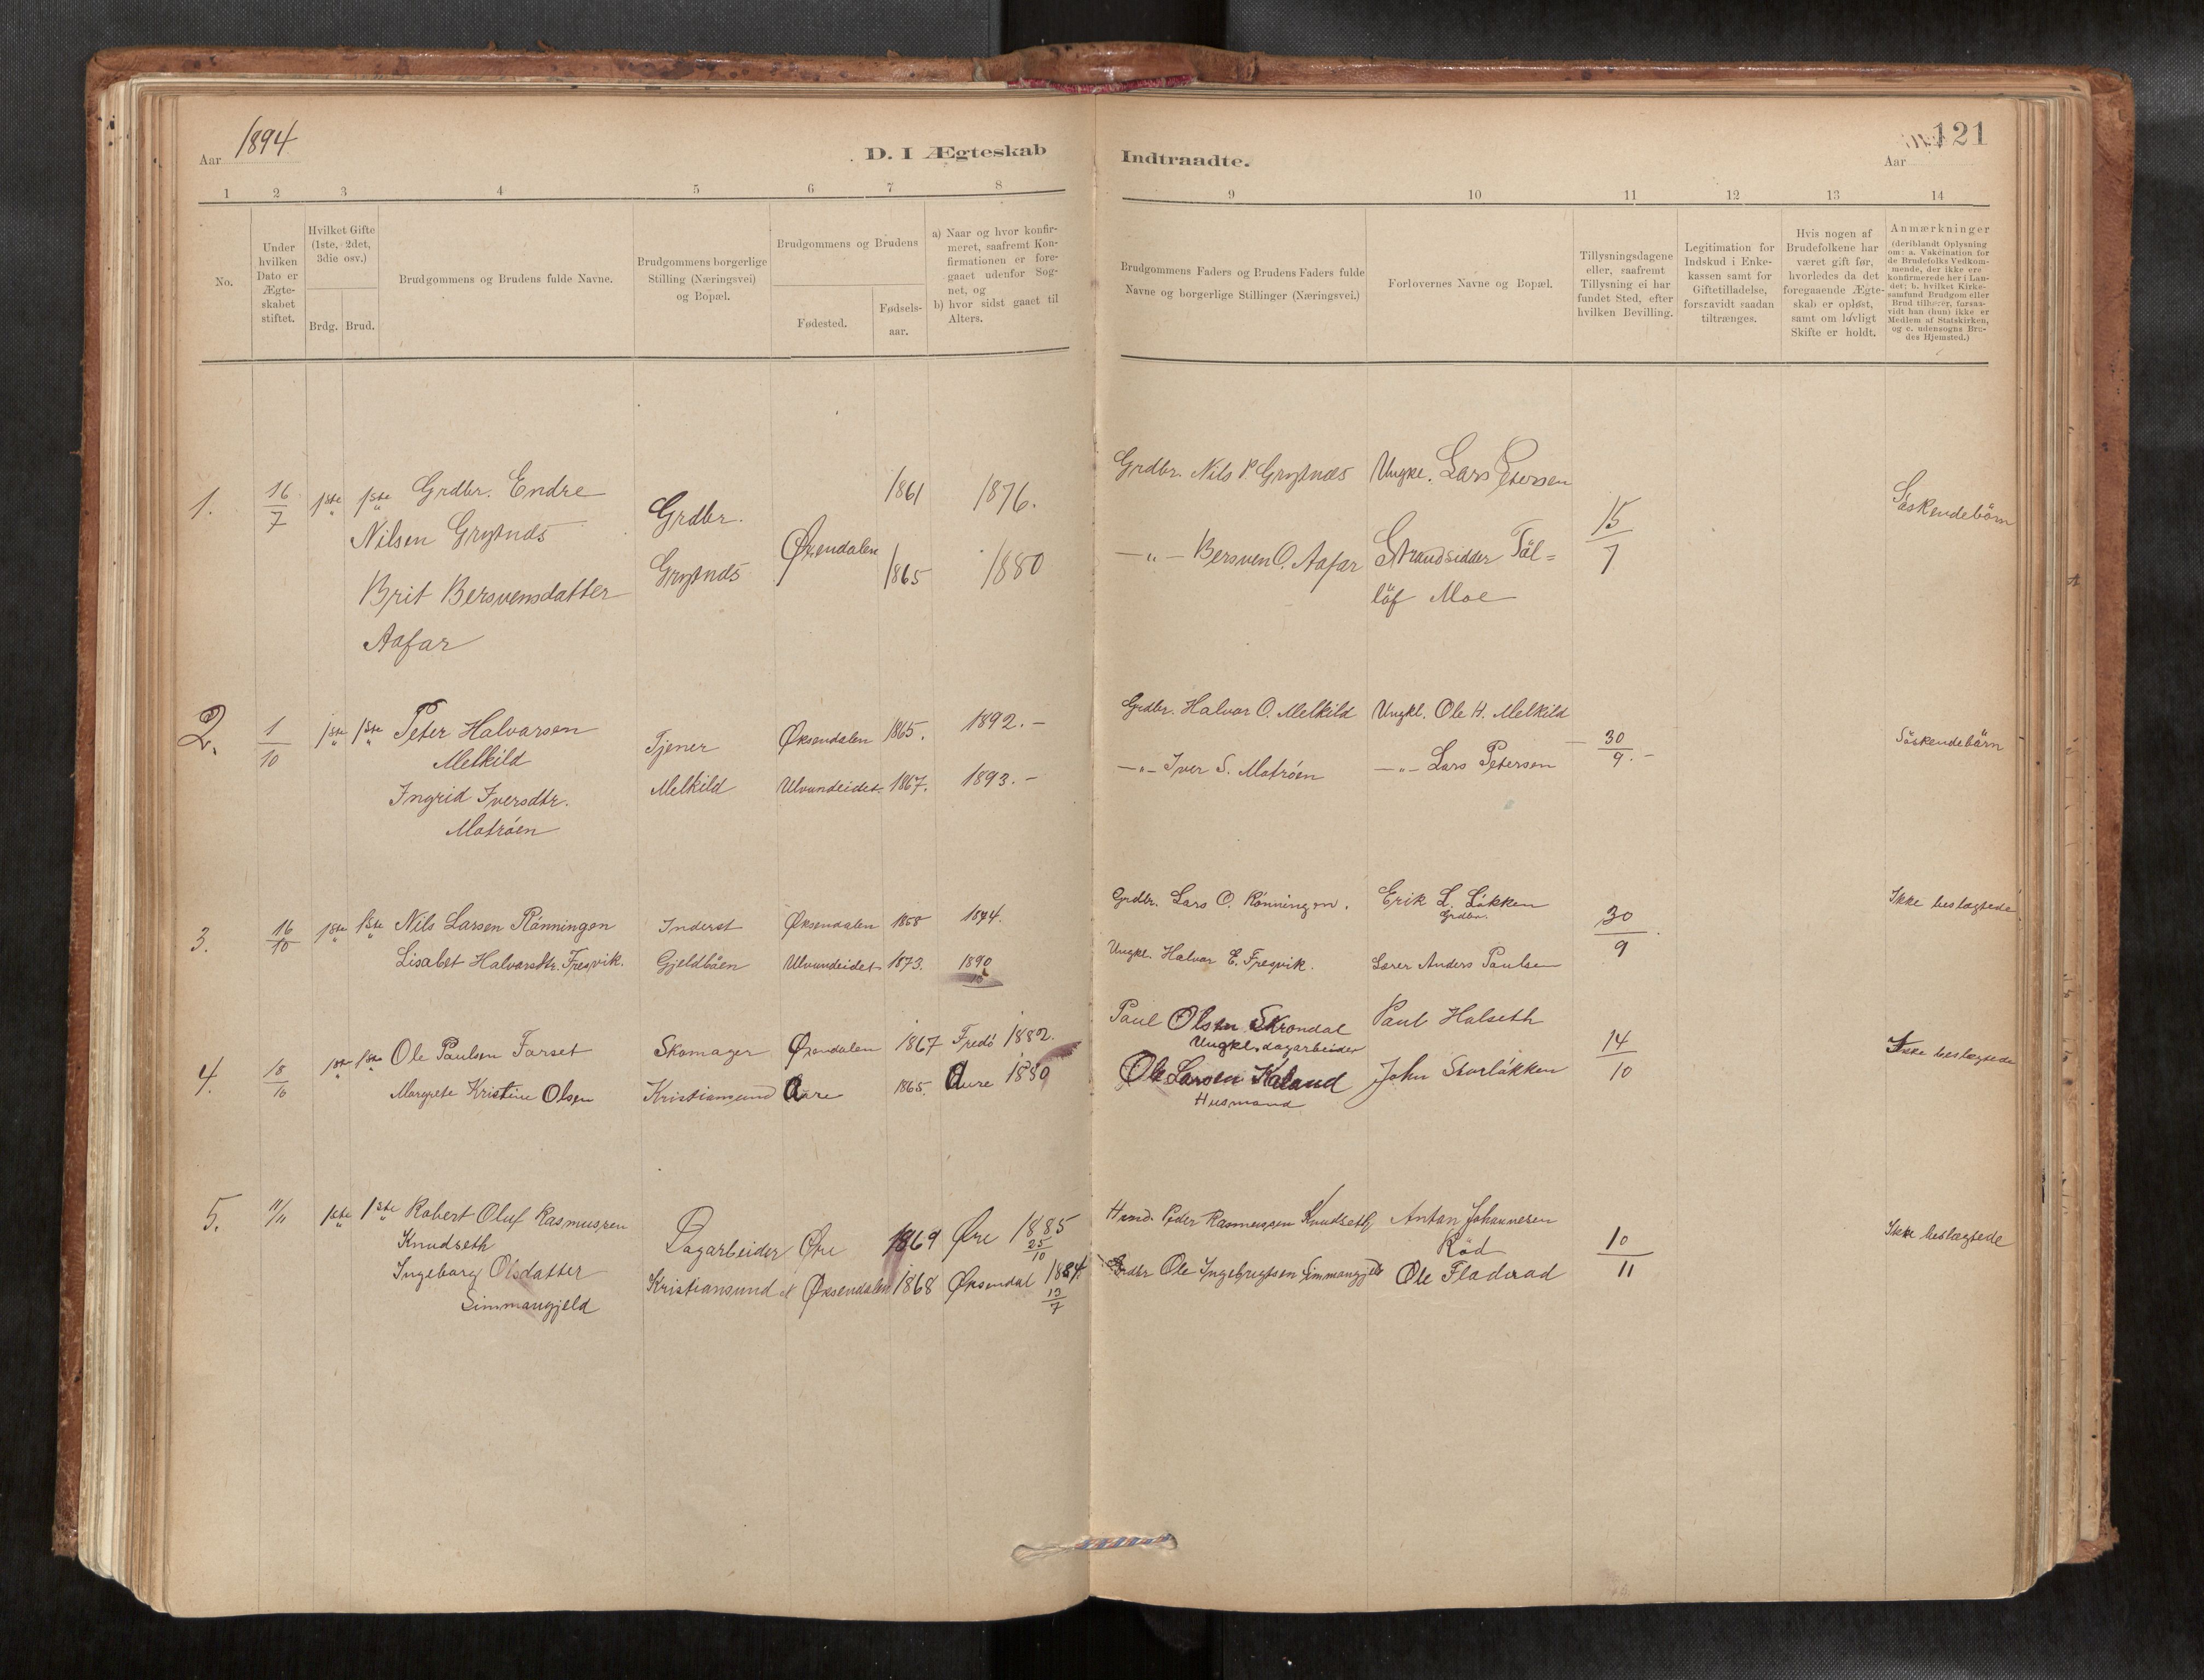 Aar 1894
D. I Ægteskab
Indtraadte.
121
Aar
1 2 3 4 5 6 7 8
9 10 11 12 13 14
No.
Under hvilken Dato er Ægte-skabet stiftet.
Hvilket Gifte (1ste, 2det, 3die osv.)
Brdg. Brud.
Brudgommens og Brudens fulde Navne.
Brudgommens borgerlige Stilling (Næringsvei) og Bopæl.
Brudgommens og Brudens
Fødested.
Fødsels-aar.
a) Naar og hvor konfir-meret, saafremt Kon-firmationen er fore-gaaet udenfor Sog-net, og
b) hvor sidst gaaet til Alters.
Brudgommens Faders og Brudens Faders fulde Navne og borgerlige Stillinger (Næringsvei.)
Forlovernes Navne og Bopæl.
Tillysningsdagene eller, saafremt Tillysning ei har fundet Sted, efter hvilken Bevilling.
Legitimation for Indskud i Enke-kassen samt for Giftetilladelse, forsaavidt saadan tiltrænges.
Hvis nogen af Brudefolkene har været gift før, hvorledes da det foregaaende Ægte-skab er opløst, samt om lovligt Skifte er holdt.
Anmærkninger
(deriblandt Oplysning om: a. Vakcination for de Brudefolks Vedkom-mende, der ikke ere konfirmerede her i Lan-det; b. hvilket Kirke-samfund Brudgom eller Brud tilhører, forsaa-vidt han (hun) ikke er Medlem af Statskirken, og c. udensogns Bru-des Hjemsted.)
1. 16/7 1ste 1ste Grdbr. Endre
Nilsen Grytnæs
Brit Bersvensdatter
Aafar
Grdbr.
Grytnæs
Øxendalen
1861 1876.
1865 1880
Grdbr. Nils P. Grytnæs Ungke. Lars Petersen
—„— Bersven O. Aafar Strandsidder Töl=
löf Moe
15/7
Söskendebörn
2. 1/10 1ste 1ste Peter Halvarsen
Melkild
Ingrid Iversdtr.
Matróen
Tjener Øksendalen 1865. 1892.—
Melkild Ulvundeidet 1867. 1893.—
Grdbr. Halvor O. Melkild Ungkl. Ole H. Melkild
—„— Iver S. Matróen —„— Lars Petersen
30/9.—
Söskendebörn
3. 16/10 1ste 1ste Nils Larsen Rönningen
Lisabet Halvarsdtr. Fresvik.
Inderst Øksendalen 1858 1874.
Gjeldbåen Ulvundeidet 1873. 1890
Grdbr. Lars O. Rönningen. Erik L. Lökken
Grdbr.
Ungkl. Halvor E. Fresvik. Lærer Anders Paulsen
30/9.
Ikke beslægtede
4. 18/10 1ste 1ste Ole Paulsen Farset
Margrete Kristine Olsen
Skomager Øxendalen 1867 Fredö 1882.
Kristiansund Aure 1865. Aure 1880
Paul Olsen Skrondal Paul Halseth
Ungkl. dagarbeider
Ole Larsen Kaland John Storlökken
Husmand
14/10
Ikke beslægtede
5. 11/11 1ste 1ste Robert Oluf Rasmussen
Knudseth
Ingeborg Olsdatter
Simmangjeld
Dagarbeider Øre 1869 Øre 1885 25/10
Kristiansund Øksendalen 1868 Øksendal 1884. 13/7
Hmd. Peder Rasmussen Knudseth Anton Johannesen
Röd
Grdbr Ole Ingebrigtsen Simmangjeld Ole Fladerad
10/11
Ikke beslægtede